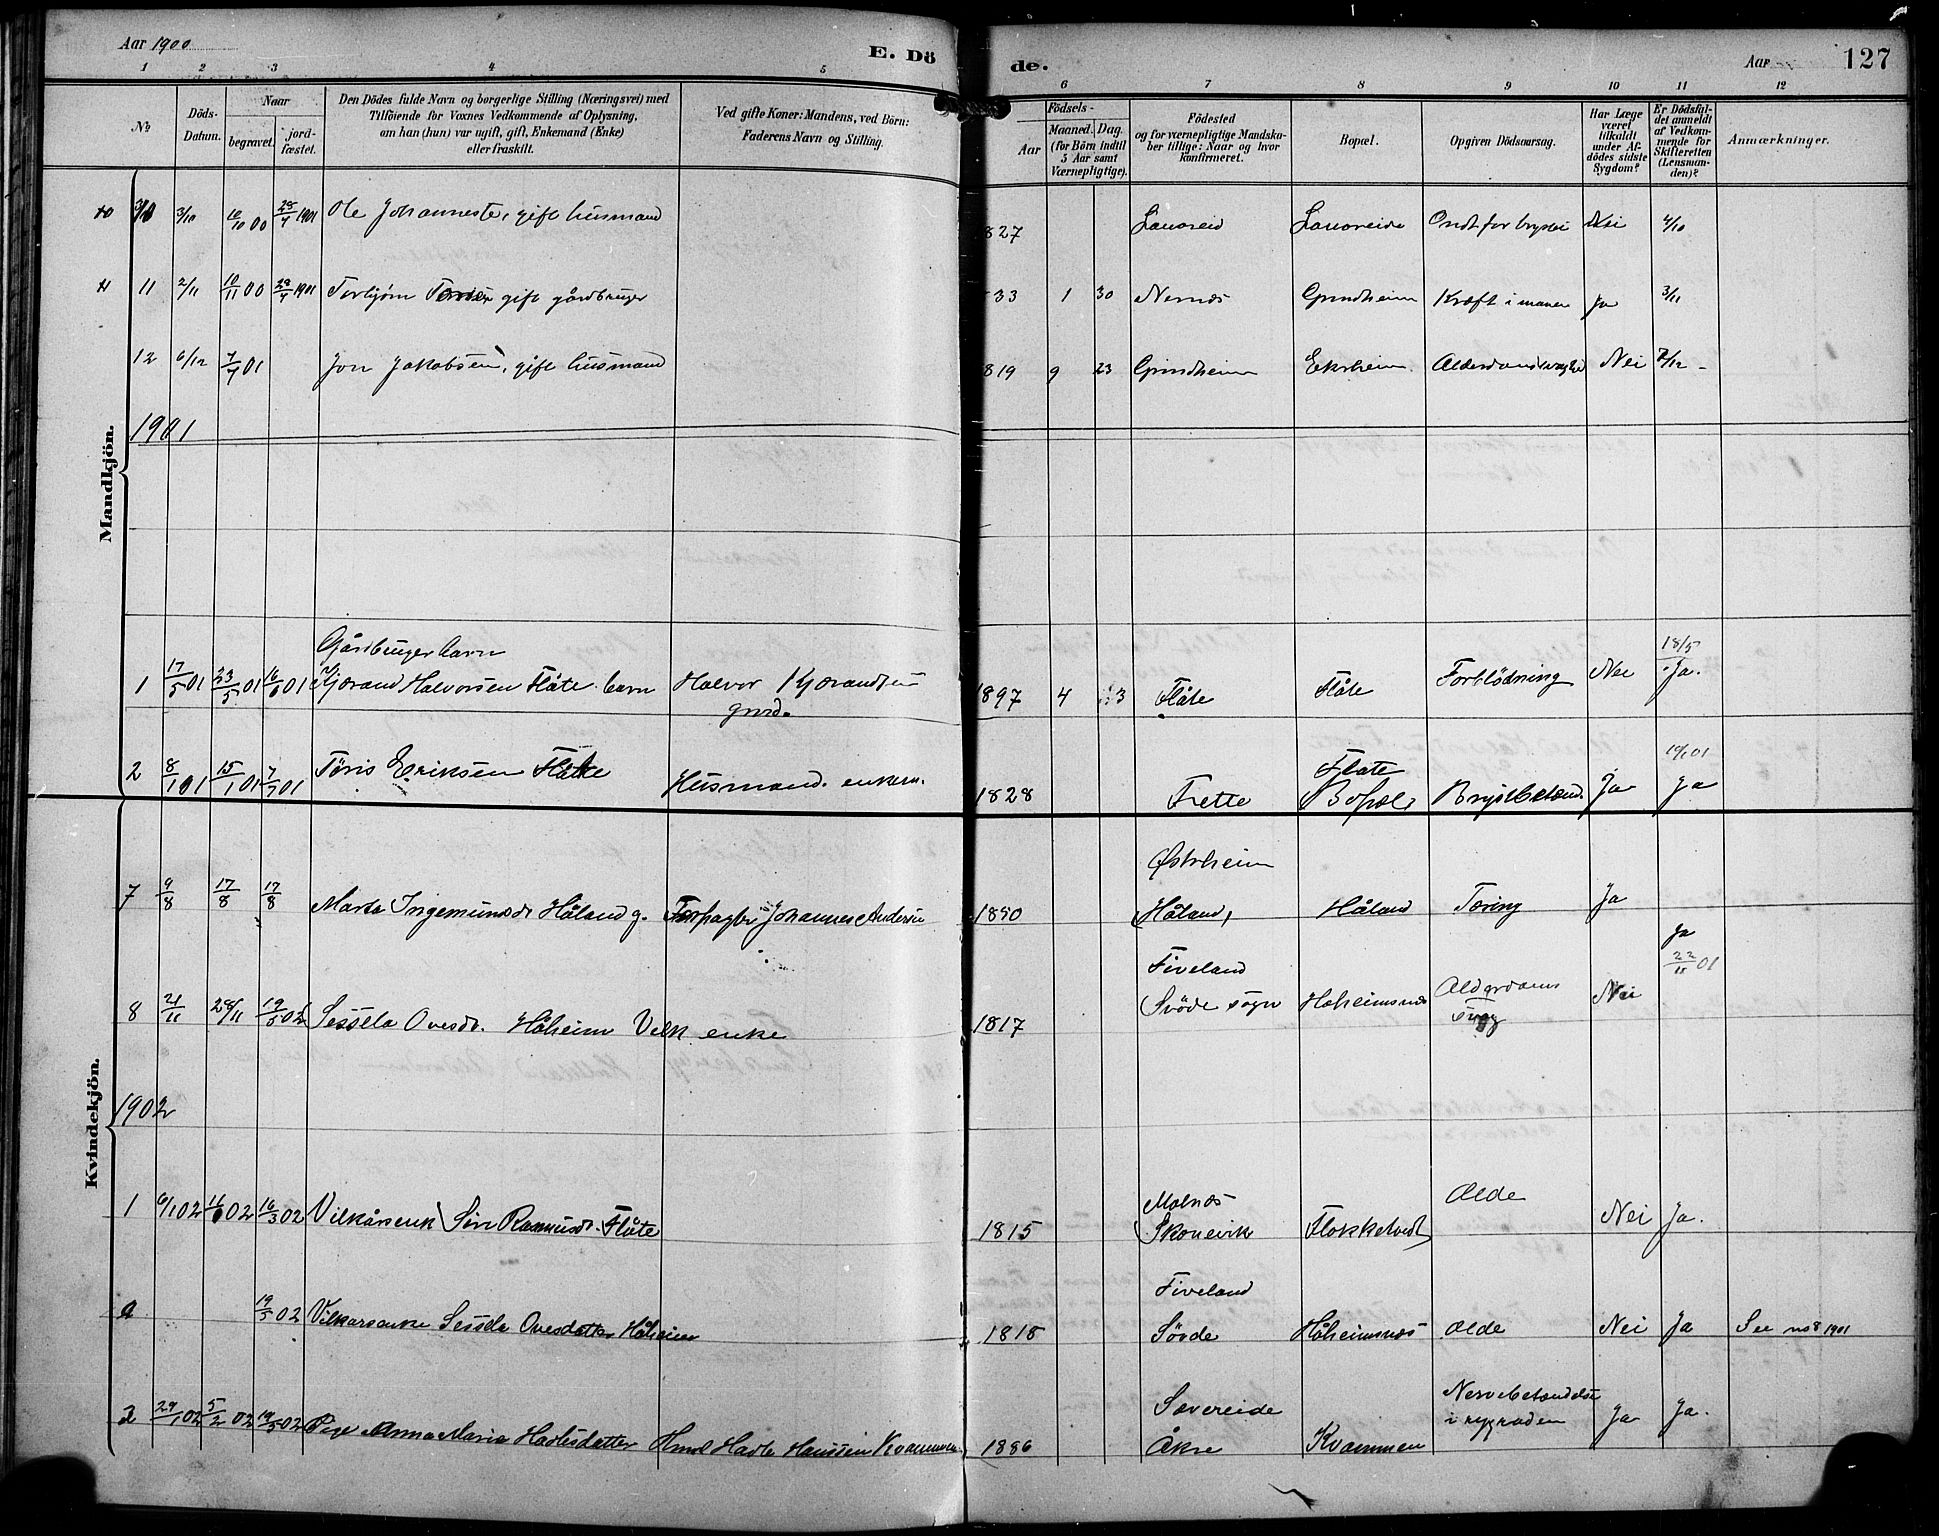 Aar 1900
E. Dö
de.
Aar
127
1 2 3 4 5 6 7 8 9 10 11 12
No
Döds-Datum.
Naar
begravet.
jord-fæstet.
Den Dödes fulde Navn og borgerlige Stilling (Næringsvei) med
Tilföiende for Voxnes Vedkommende af Oplysning,
om han (hun) var ugift, gift, Enkemand (Enke)
eller fraskilt.
Ved gifte Koner: Mandens, ved Börn:
Faderens Navn og Stilling.
Födsels-
Aar
Maaned. Dag.
(for Börn indtil
5 Aar samt
Værnepligtige).
Födested
og for værnepligtige Mandska-
ber tillige: Naar og hvor
konfirmeret.
Bopæl.
Opgiven Dödsaarsag.
Har Læge
været
tilkaldt
under Af-
dödes sidste
Sygdom?
Er Dödsfal-
det anmeldt
af Vedkom-
mende for
Skifteretten
(Lensman-
den)?
Anmærkninger.
Mandkjön.
10 3/10 10/10 00 28/4 1901 Ole Johanneste, gift husmand 827 Lauareid Lauareide Ondt for brystet Nei 4/10
11 2/11 10/11 00 28/4 1901 Torbjörn gift gårdbruger 33 1 30 Nernæs Grindheim Kræft i maven Ja 3/11
12 6/12 7/4 01 Jon Jakobsen, gift husmand 819 9 23 Grindheim Ekrheim Nei 7/12
1901
Gårdbruger barn 18/5
1 17/5 01 23/5 01 16/6 01 Kjærand Halvorsen Flåte barn Halvor Kjærandsen 1897 4 3 Flåte Flåte Forblödning Nei Ja.
grd.
2 8/1 01 15/1 01 7/7 01 Töris Eriksen Flåte Husmand. enkem. 1828 Frette Flate Bopæl Brystbetænd. Ja 10/1 01 Ja
Kvindekjön.
Østrheim
7 9/8 17/8 17/8 Marta Ingemundsd. Håland g. Forpagter Johannes Andersen 1850 Håland, Håland Tæring Ja
Fiveland Ja 22/11 01
8 21/11 28/11 19/5 02 Sessela Ovesdr. Håheim Vilk enke 1817 Svöde sogn Håheimsnes Alderdoms svag Nei
1902
Molnæs Alde
1 6/1 02 16/1 02 16/3 02 Vilkårsenk Siri Rasmusd. Flåte 1815 Skonevik Flokketvedt Nei Ja.
Fiveland
2 19/5 02 Vilkarsenke Sessela Ovesdatter Håheim 1818 Sövde Håheimsnæs Alde Nei Ja See no 8 1901
Sævereide Nervebetændelse
i rygraden
2 29/1 02 5/2 02 19/5 02 Pige Anna Maria Havtesdatter Hmd Havte Hanssen Kvammen 1886 Åkre Kvammen Ja Ja.